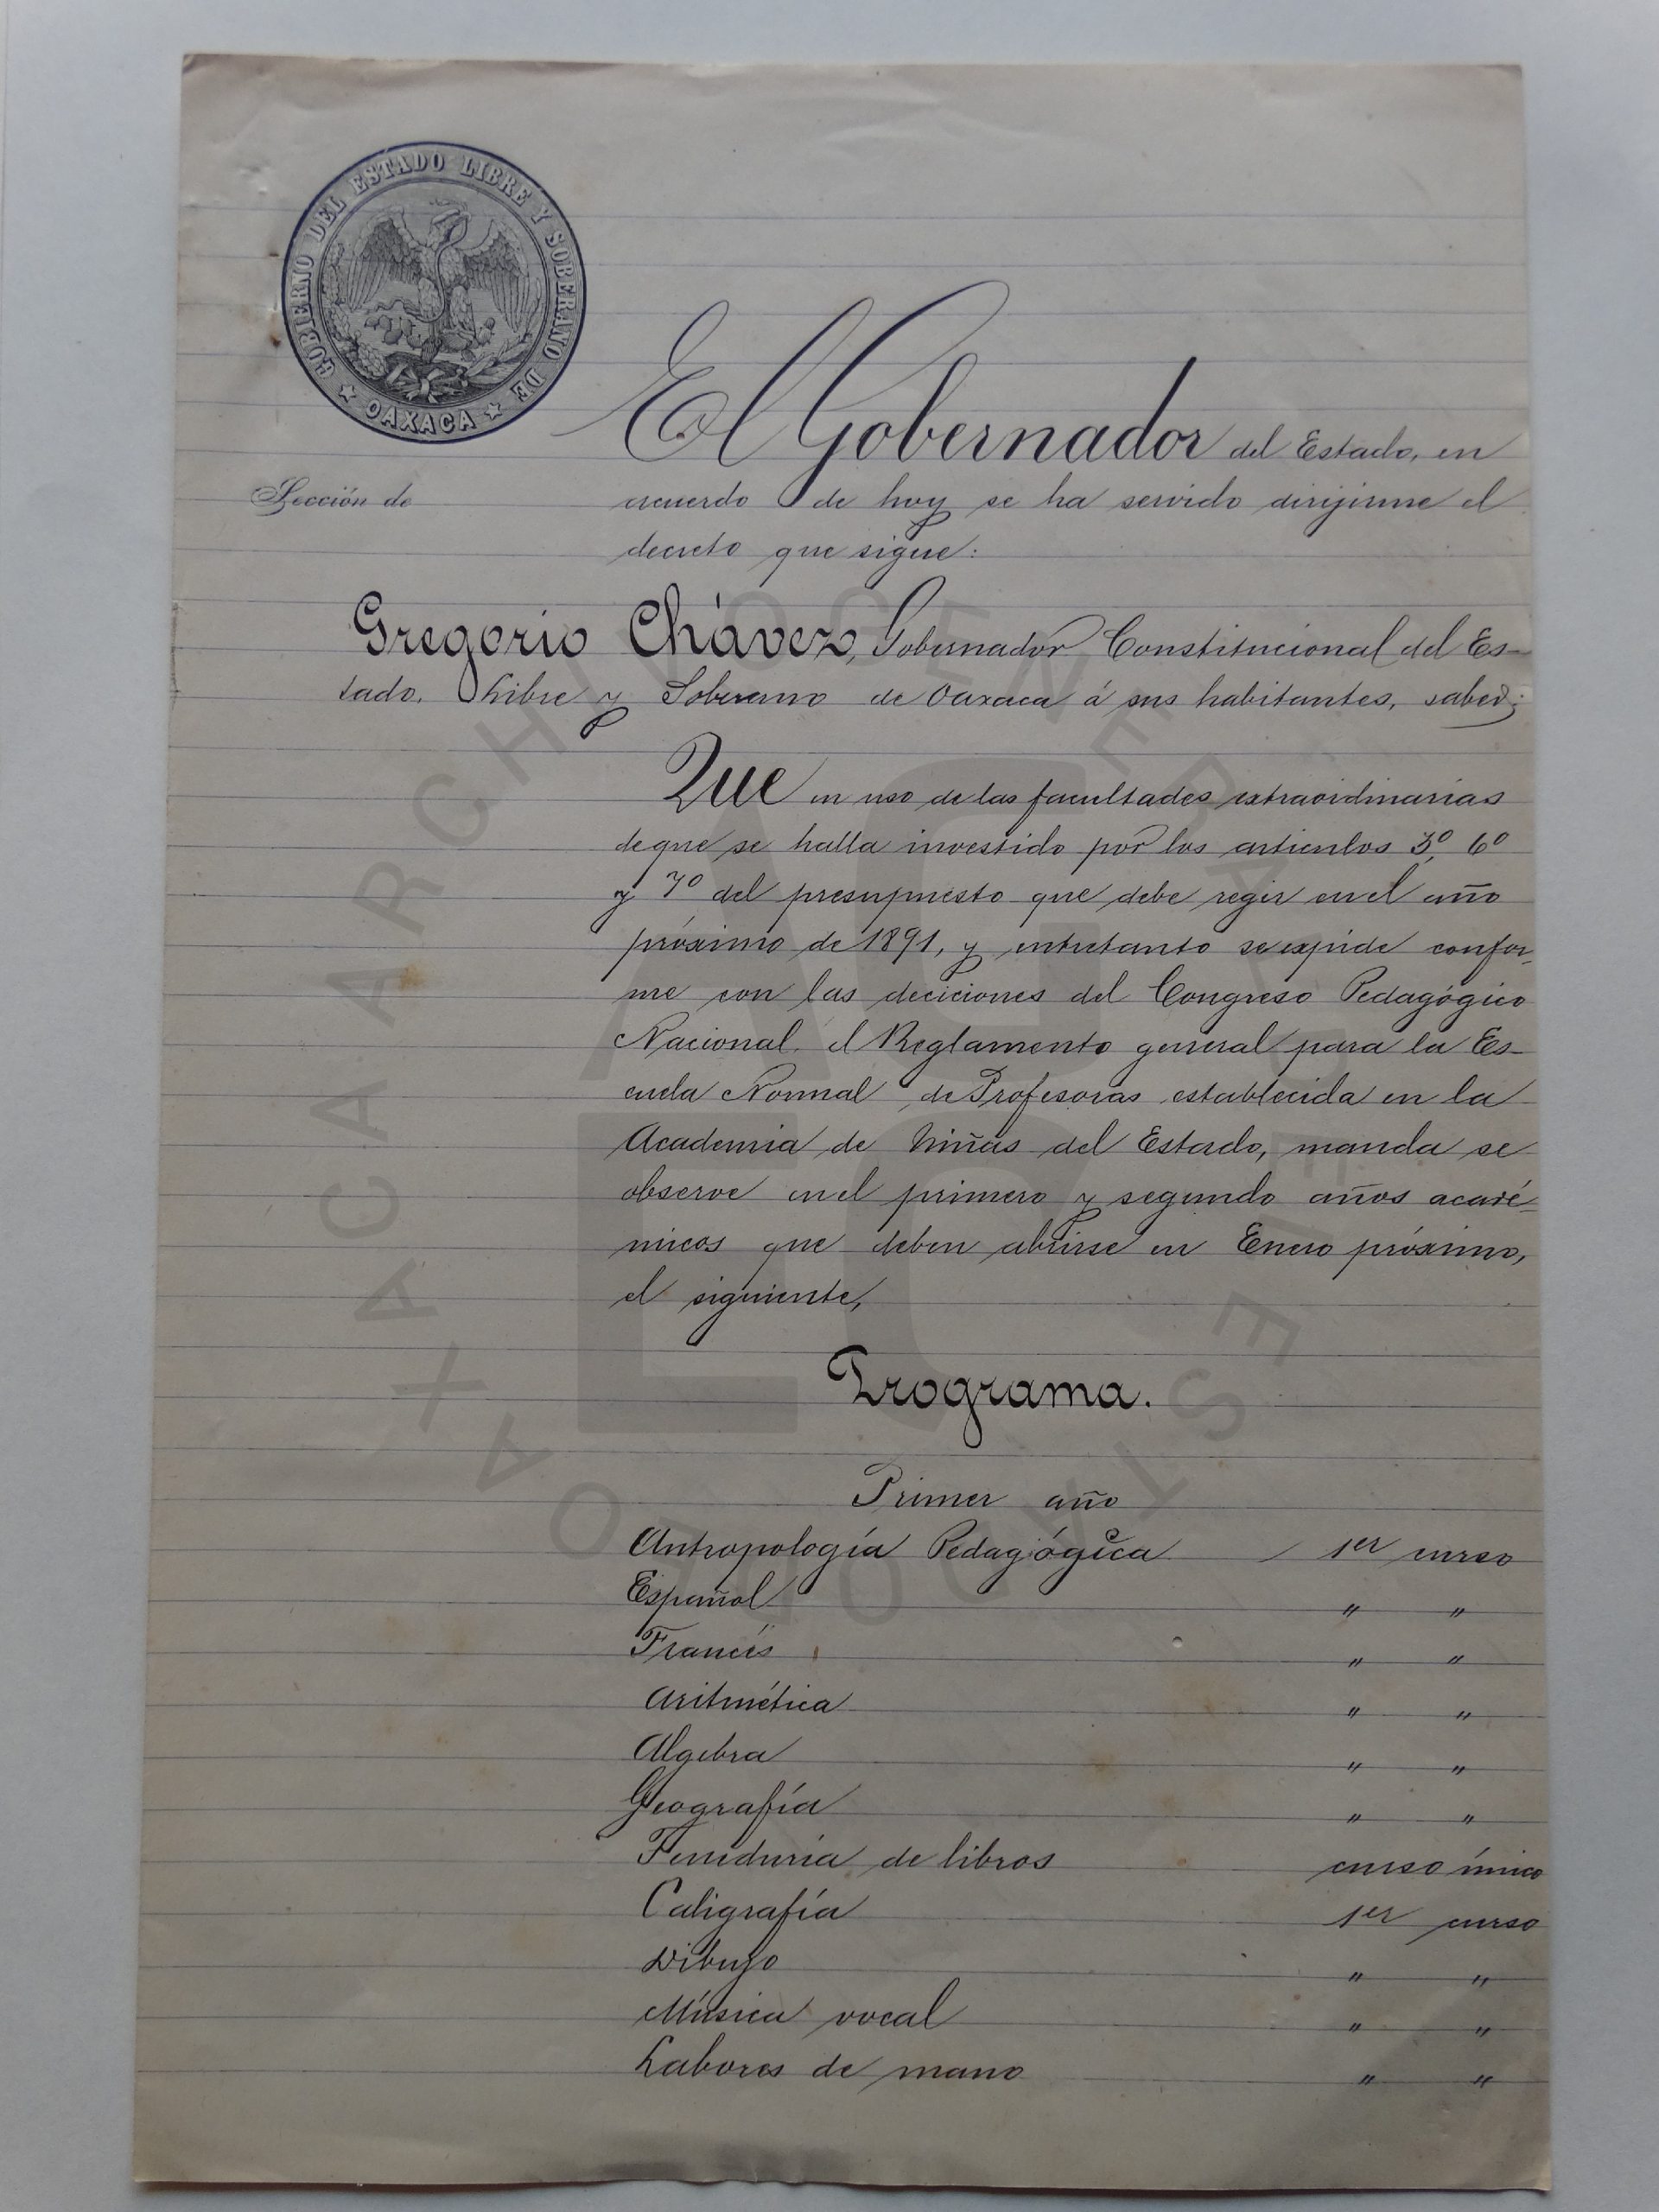 GOBIERNO DEL ESTADO LIBRE Y SOBERANO DE
★ OAXACA ★
El Gobernador del Estado, en
Sección de
acuerdo de hoy se ha servido dirijirme el
decreto que sigue:
Gregorio Chávez, Gobernador Constitucional del Es-
tado, Libre y Soberano de Oaxaca á sus habitantes, sabed:
Que en uso de las facultades extraordinarias
de que se halla investido por los artículos 3º, 6º
y 7º del presupuesto que debe regir en el año
próximo de 1891, y entretanto se expide confor-
me con las deciciones del Congreso Pedagógico
Nacional, el Reglamento general para la Es-
cuela Normal de Profesoras establecida en la
Academia de Niñas del Estado, manda se
observe en el primero y segundo años acadé-
micos que deben abrirse en Enero próximo,
el siguiente,
Programa.
Primer año
Antropología Pedagógica 1er curso
Español " "
Francés " "
Aritmética " "
Algebra " "
Geografía " "
Teneduría de libros curso único
Caligrafía 1er curso
Dibujo " "
Música vocal " "
Labores de mano " "
ARCHIVO GENERAL DEL ESTADO DE OAXACA